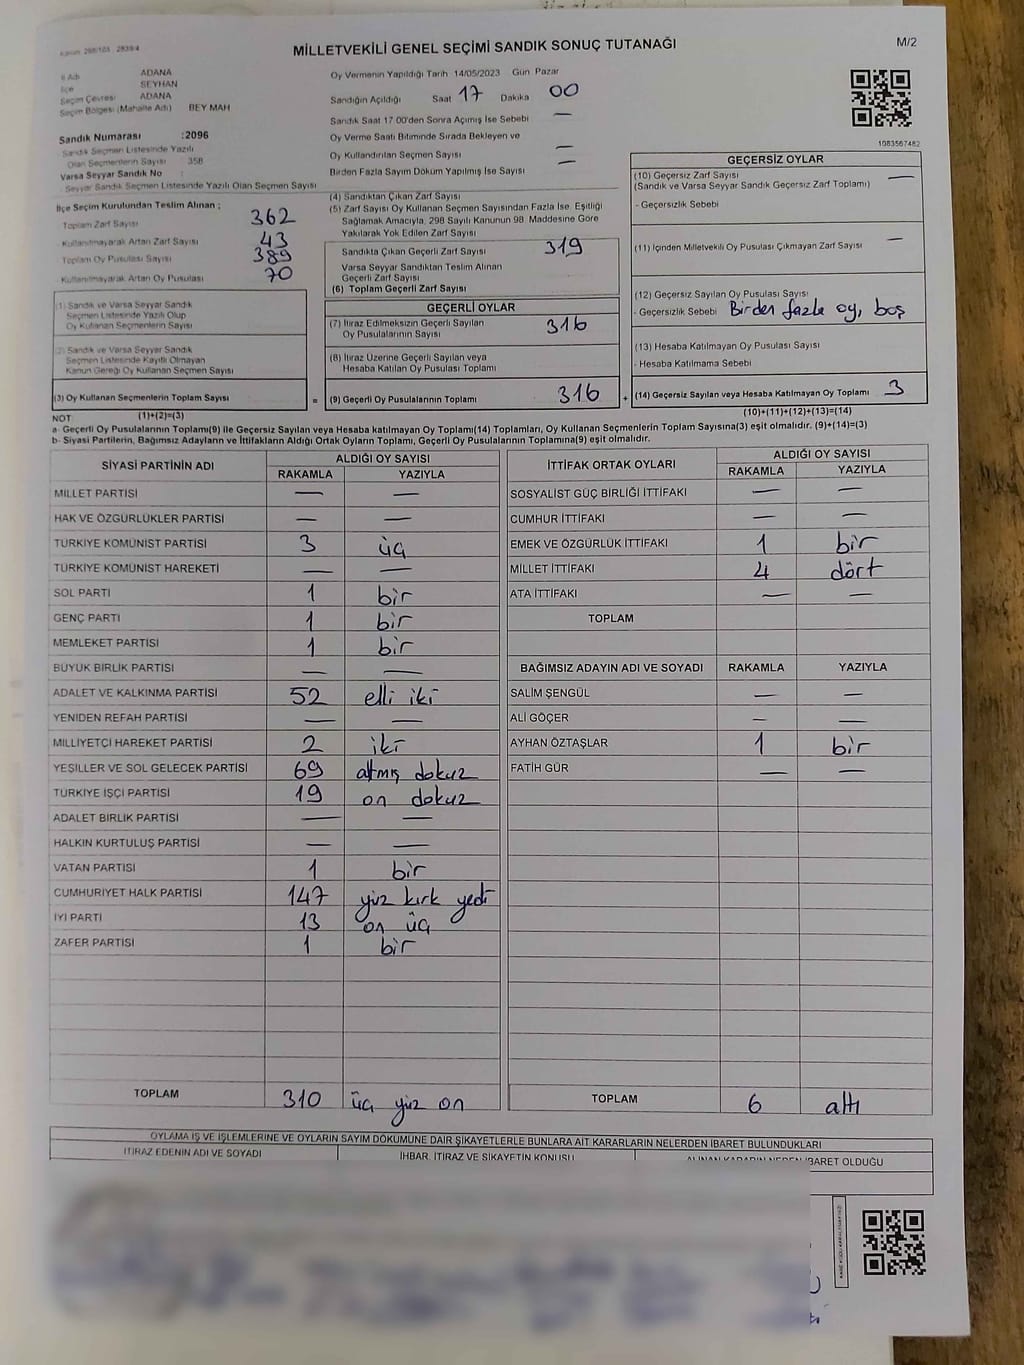 Kanun: 298/105 2839/4
MİLLETVEKİLİ GENEL SEÇİMİ SANDIK SONUÇ TUTANAĞI
M/2
İl Adı ADANA
İlçe SEYHAN
Seçim Çevresi ADANA
Seçim Bölgesi (Mahalle Adı) BEY MAH
Sandık Numarası :2096
Sandık Seçmen Listesinde Yazılı
Olan Seçmenlerin Sayısı : 358
Varsa Seyyar Sandık No :
Seyyar Sandık Seçmen Listesinde Yazılı Olan Seçmen Sayısı
Oy Vermenin Yapıldığı Tarih 14/05/2023 Gün Pazar
Sandığın Açıldığı Saat 17 Dakika 00
Sandık Saat 17.00'den Sonra Açılmış İse Sebebi —
Oy Verme Saati Bitiminde Sırada Bekleyen ve
Oy Kullandırılan Seçmen Sayısı —
Birden Fazla Sayım Döküm Yapılmış İse Sayısı —
1083567482
İlçe Seçim Kurulundan Teslim Alınan ;
Toplam Zarf Sayısı 362
Kullanılmayarak Artan Zarf Sayısı 43
Toplam Oy Pusulası Sayısı 389
Kullanılmayarak Artan Oy Pusulası 70
(1) Sandık ve Varsa Seyyar Sandık
Seçmen Listesinde Yazılı Olup
Oy Kullanan Seçmenlerin Sayısı
(2) Sandık ve Varsa Seyyar Sandık
Seçmen Listesinde Kayıtlı Olmayan
Kanun Gereği Oy Kullanan Seçmen Sayısı
(3) Oy Kullanan Seçmenlerin Toplam Sayısı =
(1)+(2)=(3)
(4) Sandıktan Çıkan Zarf Sayısı
(5) Zarf Sayısı Oy Kullanan Seçmen Sayısından Fazla İse, Eşitliği
Sağlamak Amacıyla, 298 Sayılı Kanunun 98. Maddesine Göre
Yakılarak Yok Edilen Zarf Sayısı
Sandıkta Çıkan Geçerli Zarf Sayısı 319
Varsa Seyyar Sandıktan Teslim Alınan
Geçerli Zarf Sayısı
(6) Toplam Geçerli Zarf Sayısı
GEÇERLİ OYLAR
(7) İtiraz Edilmeksizin Geçerli Sayılan
Oy Pusulalarının Sayısı 316
(8) İtiraz Üzerine Geçerli Sayılan veya
Hesaba Katılan Oy Pusulası Toplamı
(9) Geçerli Oy Pusulalarının Toplamı 316 +
GEÇERSİZ OYLAR
(10) Geçersiz Zarf Sayısı —
(Sandık ve Varsa Seyyar Sandık Geçersiz Zarf Toplamı)
- Geçersizlik Sebebi
(11) İçinden Milletvekili Oy Pusulası Çıkmayan Zarf Sayısı —
(12) Geçersiz Sayılan Oy Pusulası Sayısı
- Geçersizlik Sebebi Birden fazla oy, boş
(13) Hesaba Katılmayan Oy Pusulası Sayısı
- Hesaba Katılmama Sebebi
(14) Geçersiz Sayılan veya Hesaba Katılmayan Oy Toplamı 3
(10)+(11)+(12)+(13)=(14)
NOT
a- Geçerli Oy Pusulalarının Toplamı(9) ile Geçersiz Sayılan veya Hesaba katılmayan Oy Toplamı(14) Toplamları, Oy Kullanan Seçmenlerin Toplam Sayısına(3) eşit olmalıdır. (9)+(14)=(3)
b- Siyasi Partilerin, Bağımsız Adayların ve İttifakların Aldığı Ortak Oyların Toplamı, Geçerli Oy Pusulalarının Toplamına(9) eşit olmalıdır.
SİYASİ PARTİNİN ADI ALDIĞI OY SAYISI
RAKAMLA YAZIYLA
MİLLET PARTİSİ — —
HAK VE ÖZGÜRLÜKLER PARTİSİ — —
TÜRKİYE KOMÜNİST PARTİSİ 3 üç
TÜRKİYE KOMÜNİST HAREKETİ — —
SOL PARTİ 1 bir
GENÇ PARTİ 1 bir
MEMLEKET PARTİSİ 1 bir
BÜYÜK BİRLİK PARTİSİ — —
ADALET VE KALKINMA PARTİSİ 52 elli iki
YENİDEN REFAH PARTİSİ — —
MİLLİYETÇİ HAREKET PARTİSİ 2 iki
YEŞİLLER VE SOL GELECEK PARTİSİ 69 atmış dokuz
TÜRKİYE İŞÇİ PARTİSİ 19 on dokuz
ADALET BİRLİK PARTİSİ — —
HALKIN KURTULUŞ PARTİSİ — —
VATAN PARTİSİ 1 bir
CUMHURİYET HALK PARTİSİ 147 yüz kırk yedi
İYİ PARTİ 13 on üç
ZAFER PARTİSİ 1 bir
TOPLAM 310 üç yüz on
İTTİFAK ORTAK OYLARI ALDIĞI OY SAYISI
RAKAMLA YAZIYLA
SOSYALİST GÜÇ BİRLİĞİ İTTİFAKI — —
CUMHUR İTTİFAKI — —
EMEK VE ÖZGÜRLÜK İTTİFAKI 1 bir
MİLLET İTTİFAKI 4 dört
ATA İTTİFAKI — —
TOPLAM
BAĞIMSIZ ADAYIN ADI VE SOYADI RAKAMLA YAZIYLA
SALİM ŞENGÜL — —
ALİ GÖÇER — —
AYHAN ÖZTAŞLAR 1 bir
FATİH GÜR — —
TOPLAM 6 altı
OYLAMA İŞ VE İŞLEMLERİNE VE OYLARIN SAYIM DÖKÜMÜNE DAİR ŞİKAYETLERLE BUNLARA AİT KARARLARIN NELERDEN İBARET BULUNDUKLARI
İTİRAZ EDENİN ADI VE SOYADI
İHBAR, İTİRAZ VE ŞİKAYETİN KONUSU
ALINAN KARARIN NEDEN İBARET OLDUĞU